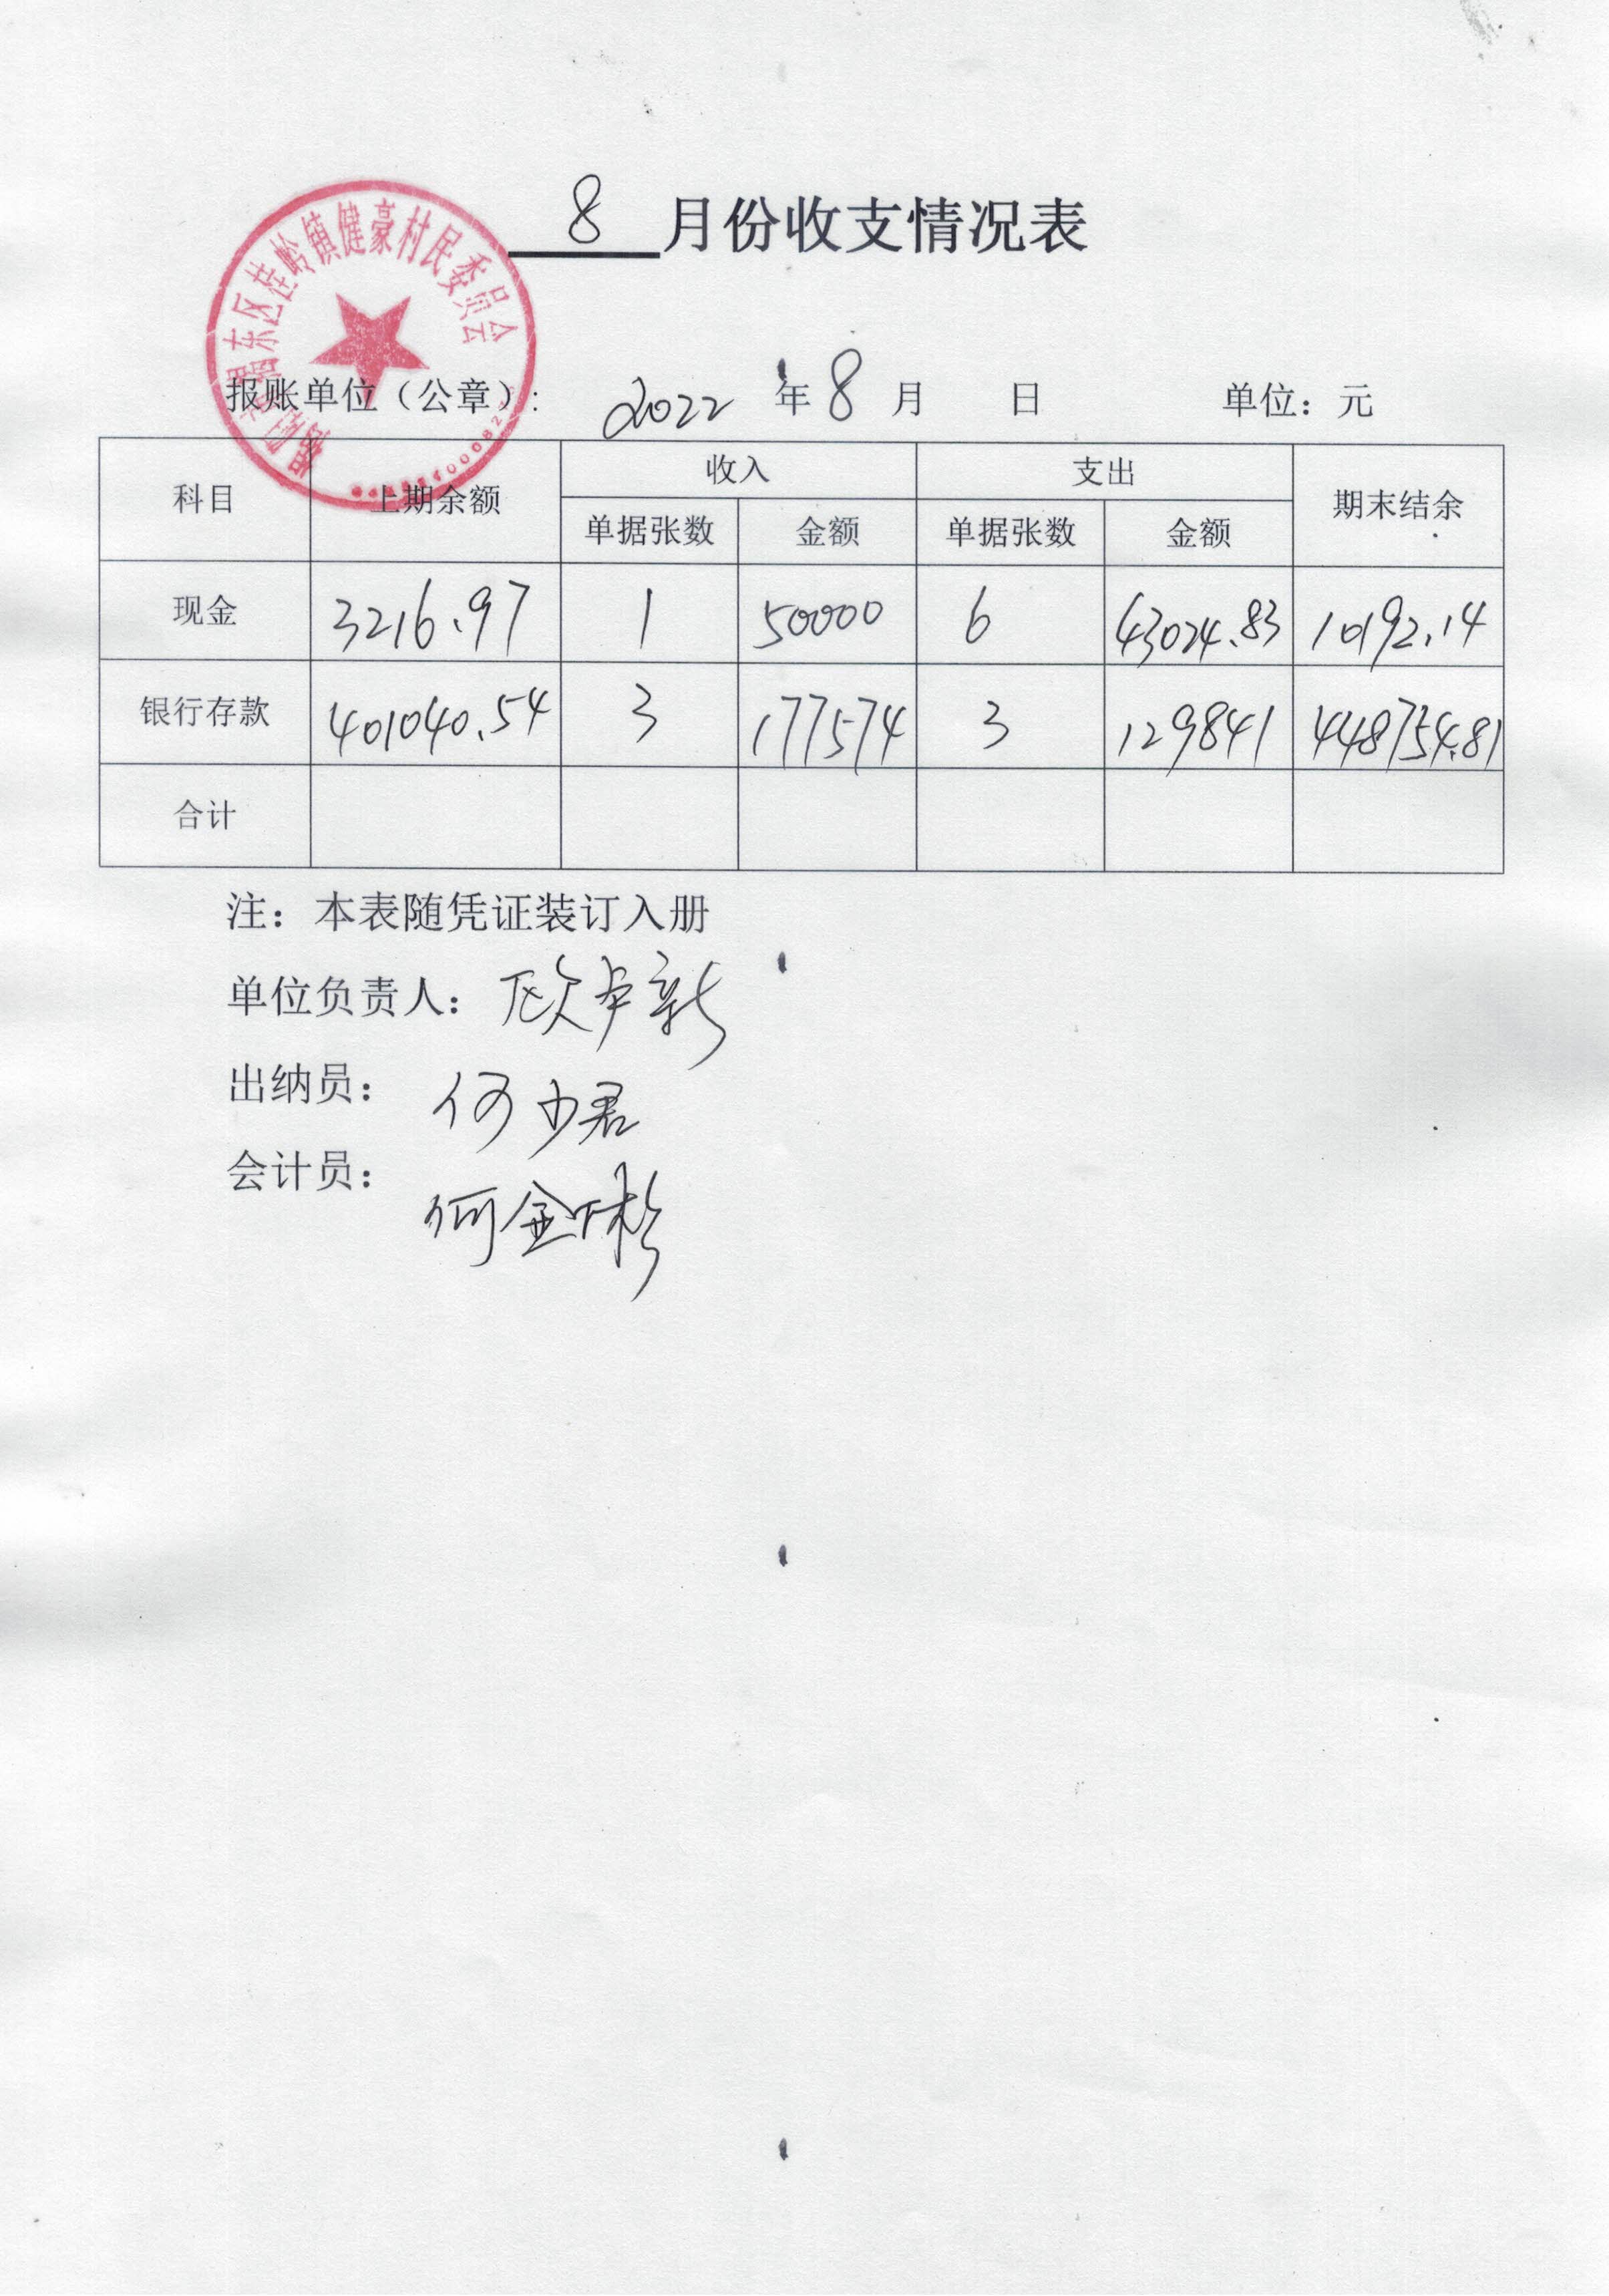 8 月份收支情况表
揭阳市揭东区桂岭镇健豪村民委员会
报账单位（公章）: 2022 年 8 月 日 单位：元
科目 上期余额 收入 支出 期末结余
单据张数 金额 单据张数 金额
现金 3216.97 1 50000 6 43024.83 10192.14
银行存款 401040.54 3 177574 3 129841 448754.81
合计
注：本表随凭证装订入册
单位负责人：欧卓新
出纳员：何少君
会计员：何金彬